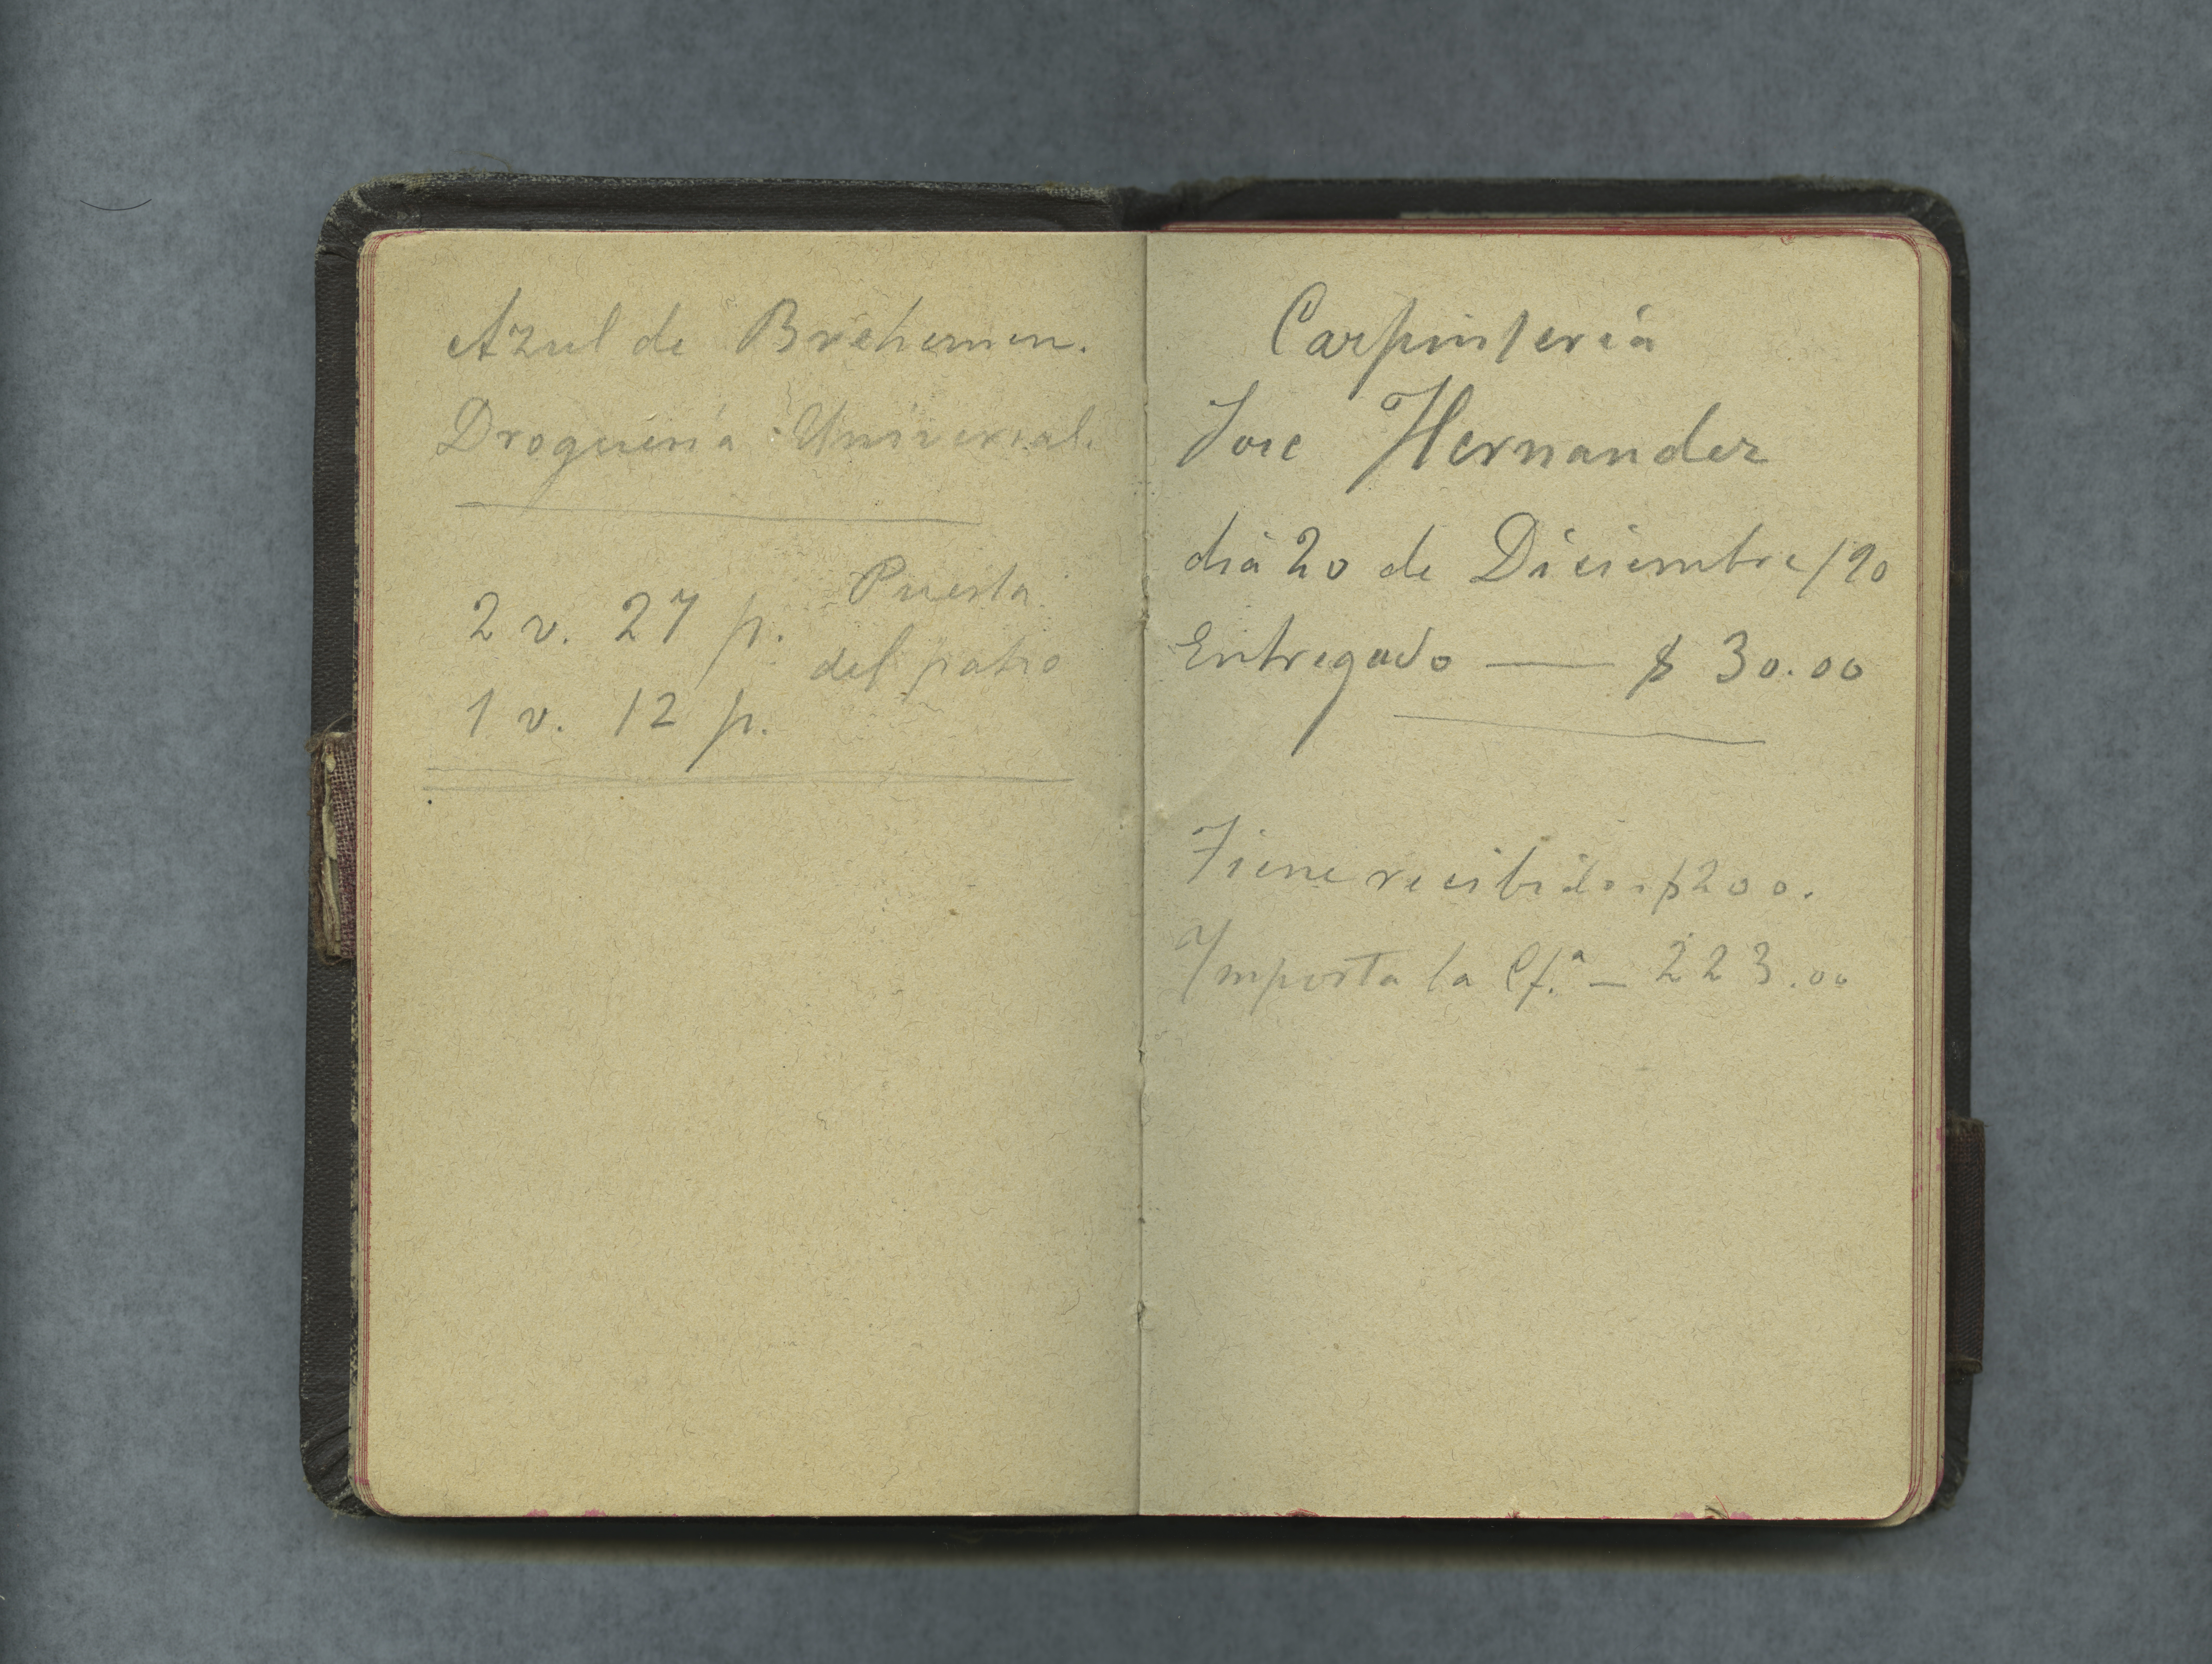 Azul de Brehemen.
Droguería Universal.
2 v. 27 p. Puerta
del patio
1 v. 12 p.
Carpintería
Jose Hernandez
día 20 de Diciembre/90
Entregado — $ 30.00
Tiene recibidos $200.
Importa la Cf.ª — 223.00